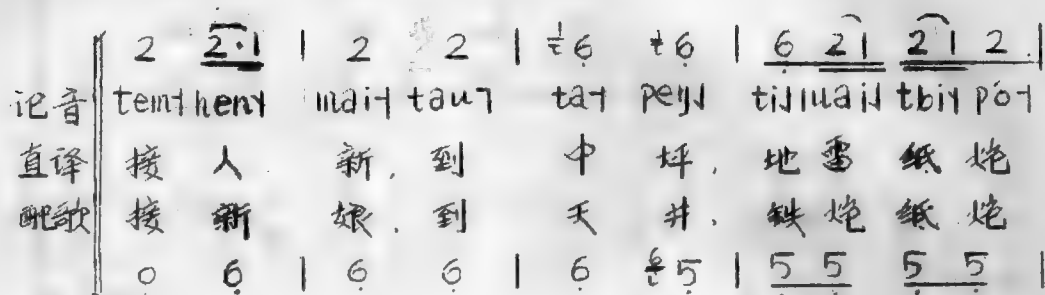 2 2·1 | 2 2 | 6 6 | 6 21 21 2 |
记音 tem˧ hen˧ mai˧ tau˥ ta˧
直译 接 人 新, 到 中 坪, 地 雷 纸 炮
配歌 接 新 娘, 到 天 井, 铁 炮 纸 炮
0 6 | 6 6 | 6 5 | 5 5 5 5 |